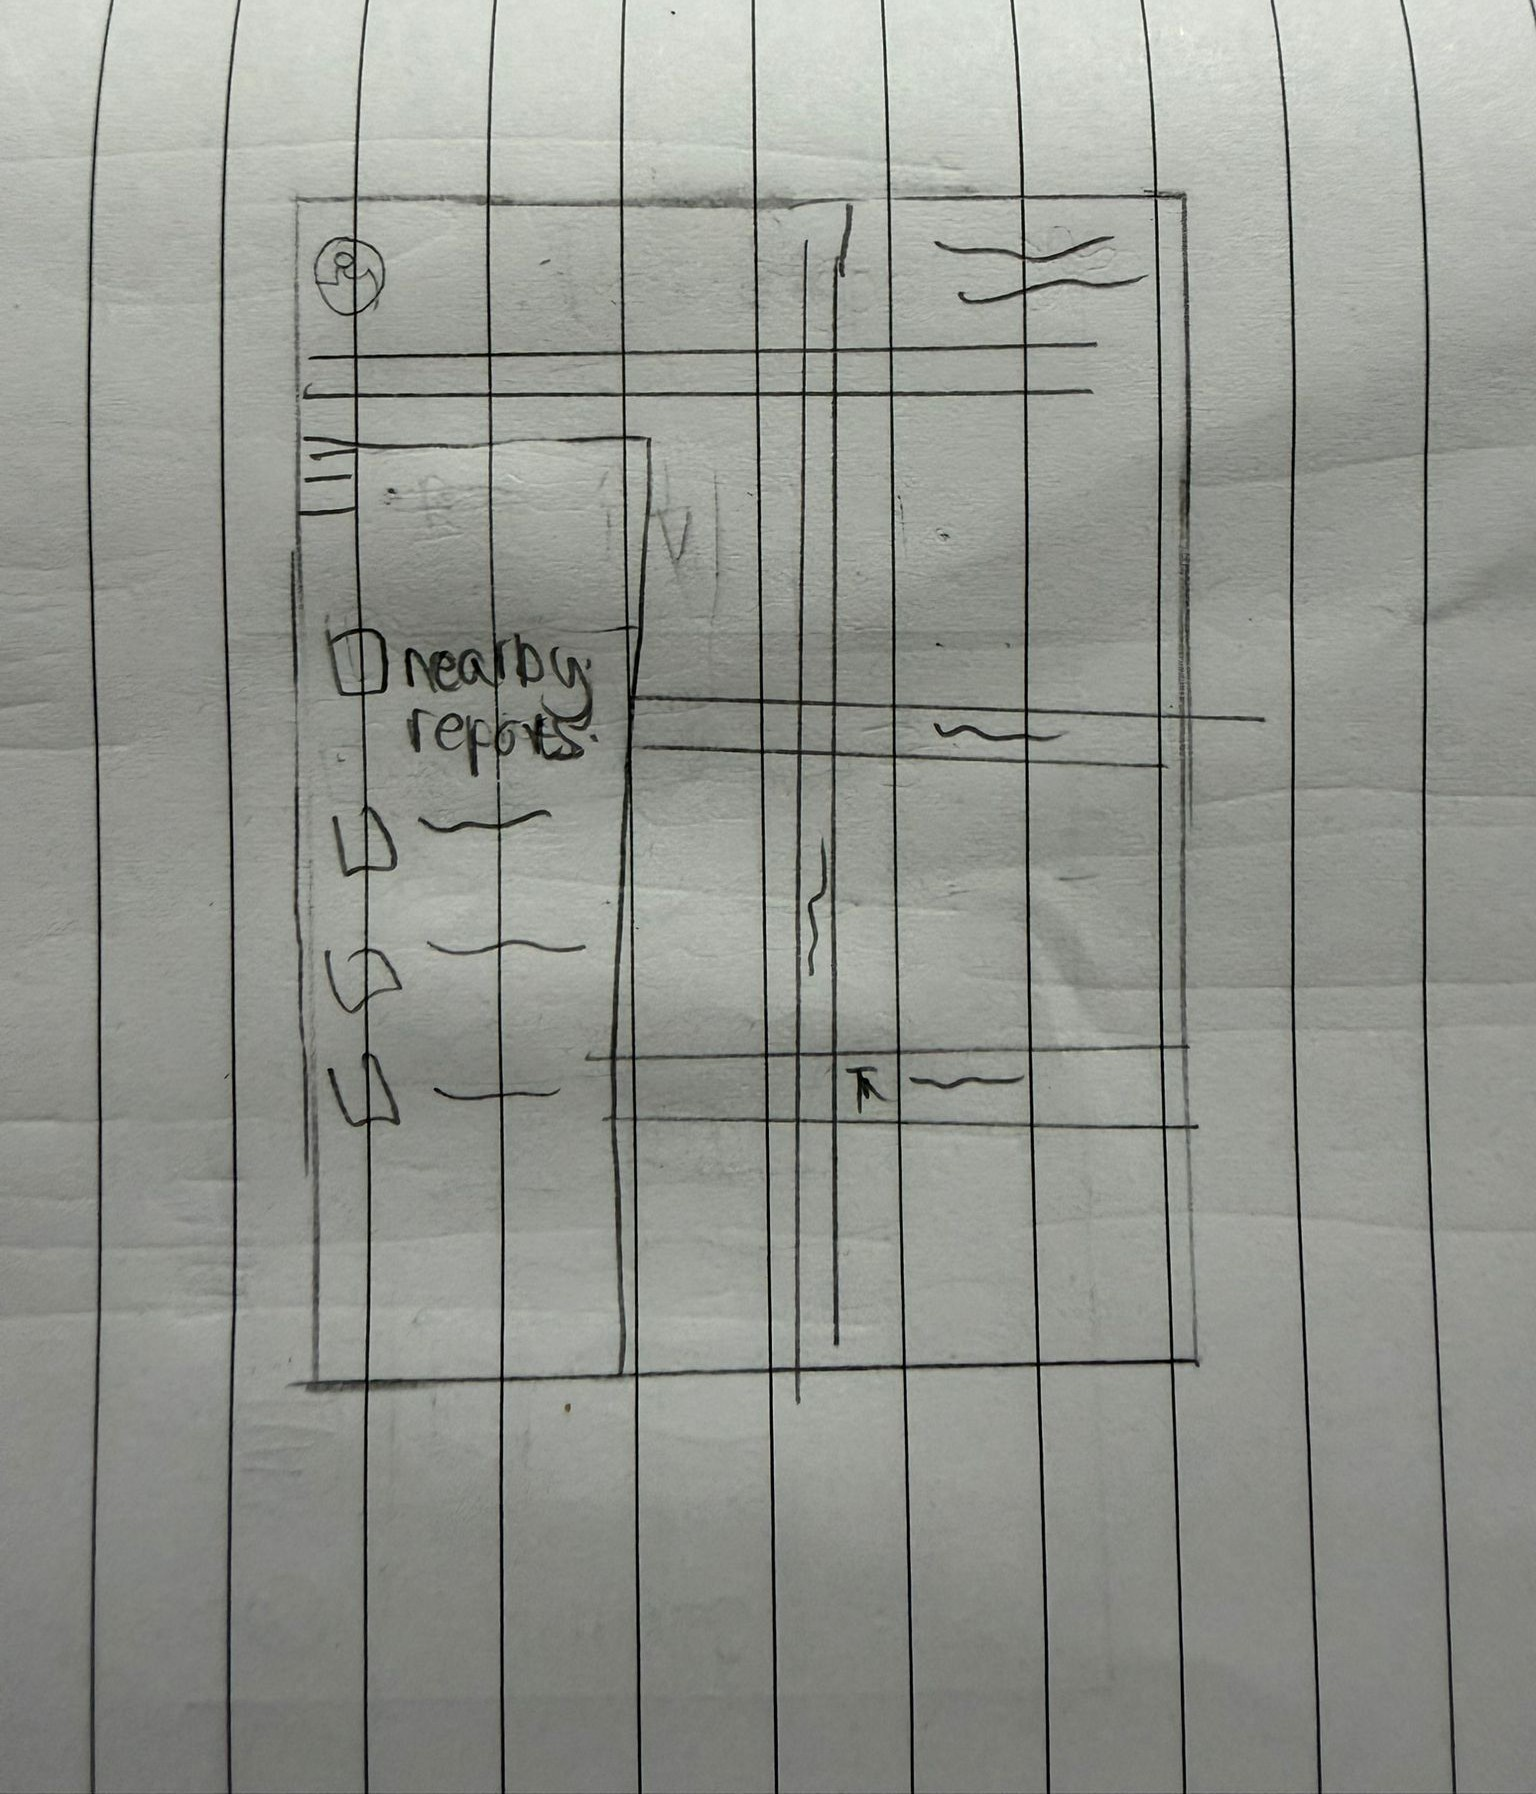 nearby
reports.